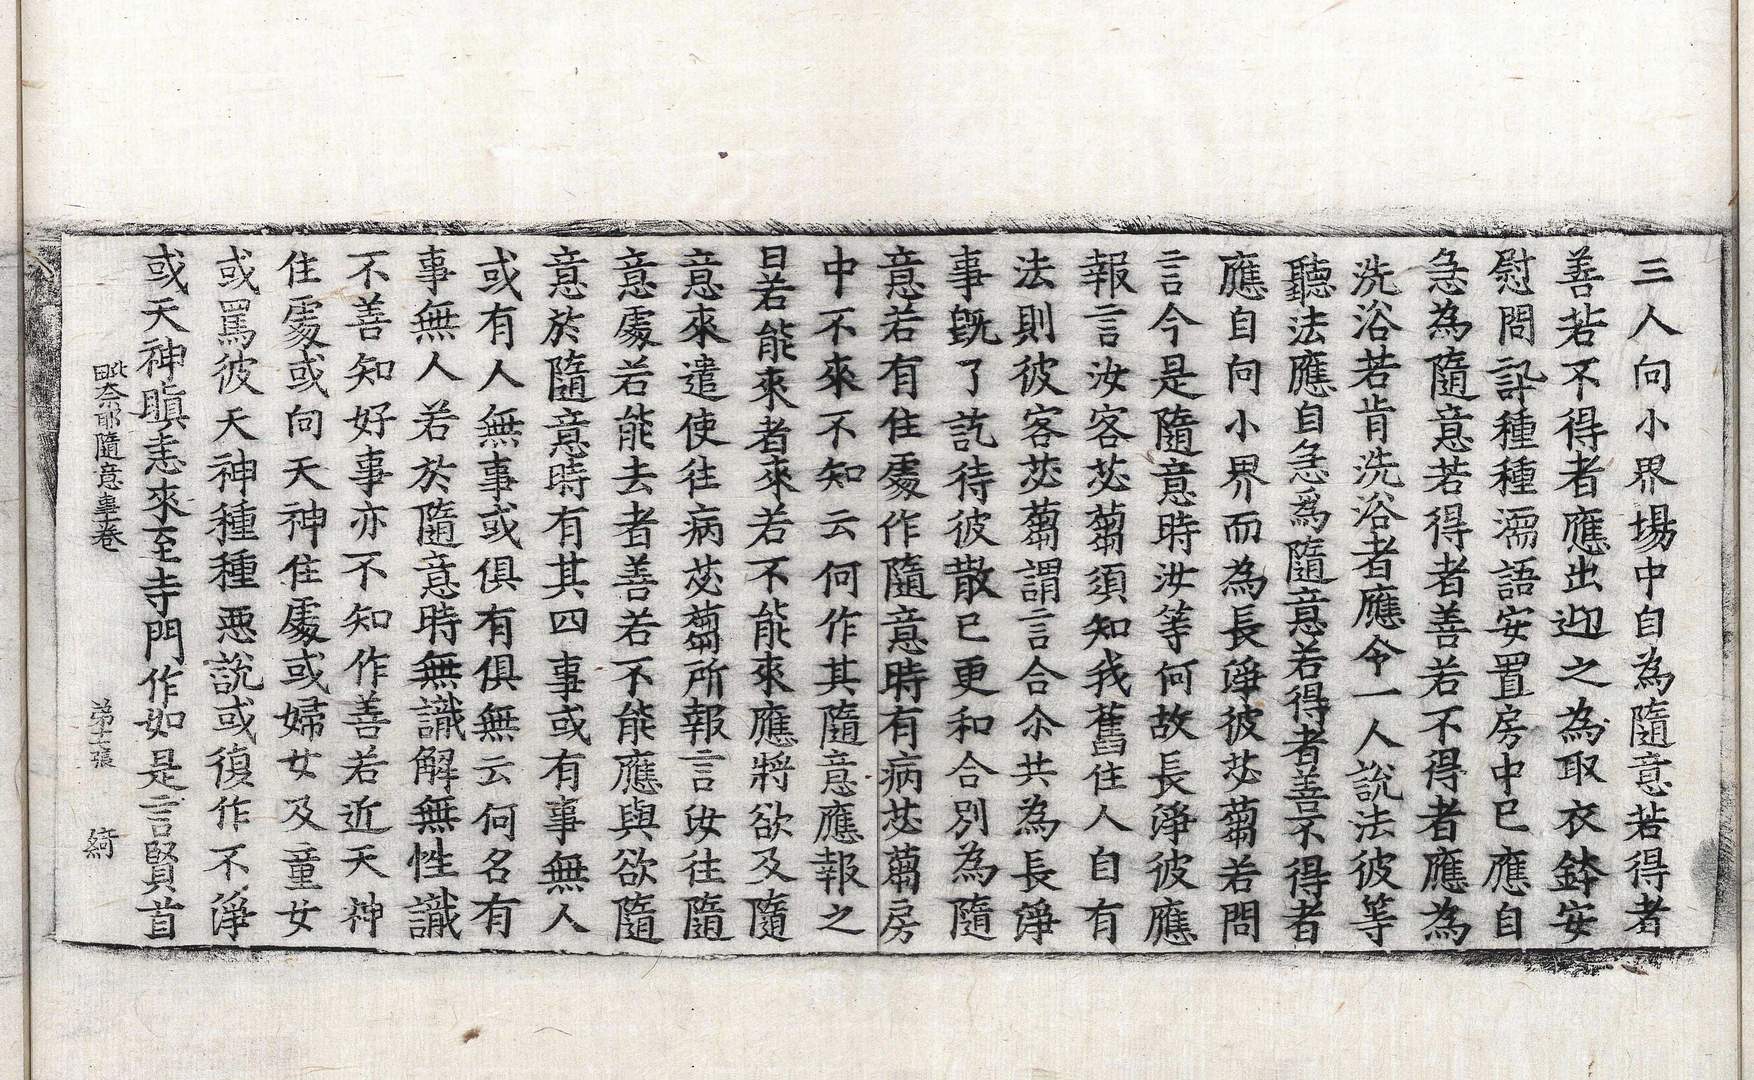 三人向小界場中自為隨意若得者
善若不得者應出迎之為取衣鉢安
慰問訊種種濡語安置房中已應自
急為隨意若得者善若不得者應為
洗浴若肯洗浴者應令一人說法彼等
聽法應自急為隨意若得者善不得者
應自向小界而為長淨彼苾蒭若問
言今是隨意時汝等何故長淨彼應
報言汝客苾蒭須知我舊住人自有
法則彼客苾蒭謂言合尒共為長淨
事旣了訖待彼散已更和合別為隨
意若有住處作隨意時有病苾蒭房
中不來不知云何作其隨意應報之
曰若能來者來若不能來應將欲及隨
意來遣使往病苾蒭所報言汝往隨
意處若能去者善若不能應與欲隨
意於隨意時有其四事或有事無人
或有人無事或俱有俱無云何名有
事無人若於隨意時無識解無性識
不善知好事亦不知作善若近天神
住處或向天神住處或婦女及童女
或罵彼天神種種悪說或復作不淨
或天神瞋恚來至寺門作如是言賢首
毗奈耶隨意事卷 第十一張 綺